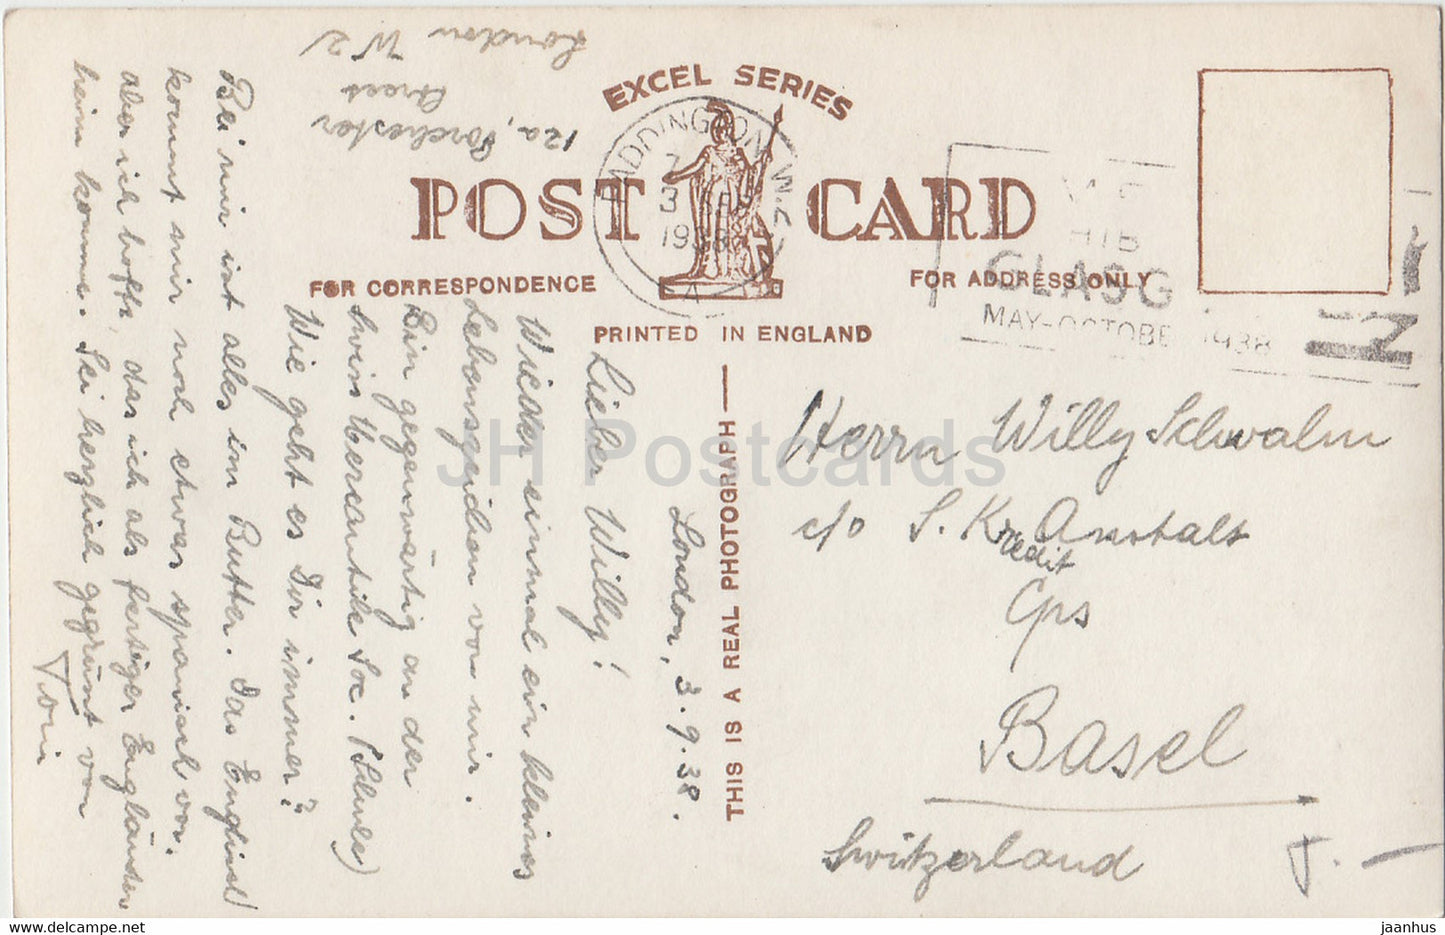 EXCEL SERIES
POST CARD
FOR CORRESPONDENCE
FOR ADDRESS ONLY
PRINTED IN ENGLAND
THIS IS A REAL PHOTOGRAPH
PADDINGTON W.2
3 SEP
1938
A
GLASG
MAY-OCTOBE 1938
12a, Porchester
London W2
London, 3.9.38.
Lieber Willy!
Wieder einmal ein kleines
Lebenszeichen von mir.
Bin gegenwärtig an der
Swiss Mercantile Soc. (Schule)
Wie geht es Dir immer?
Bei mir ist alles im Butter. Das Englisch
kommt mir noch etwas spanisch vor.
aber ich hoffe, das ich als fertiger Engländer
heim komme. Sei herzlich gegrüsst von
Toni
Herrn Willy Schwalm
c/o S. Kredit Anstalt
Cps
Basel
Switzerland
JH Postcards
https://www.delcampe.net
jaanhus